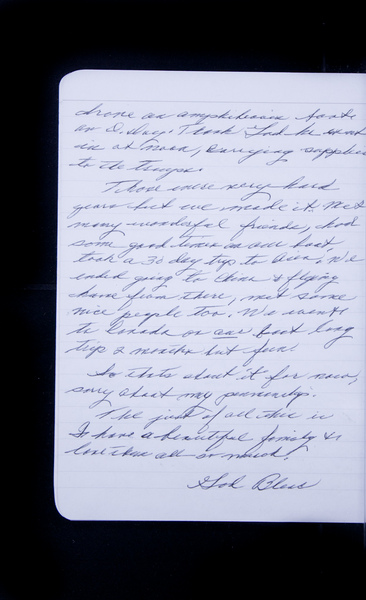 drove an amphibious tank
on D. Day. Thank God he went
in at noon, carrying supplies
to the troops.
Those were very hard
years but we made it. Met
many wonderful friends, had
some good times on our boat,
took a 30 day trip to
ended going to China & flying
home from there, met some
nice people too. We went
to Canada on our boat long
trip 2 months but fun.
So thats about it for now,
sorry about my penmanship.
The jist of all this is
I have a beautiful family & I
love them all so much!
God Bless